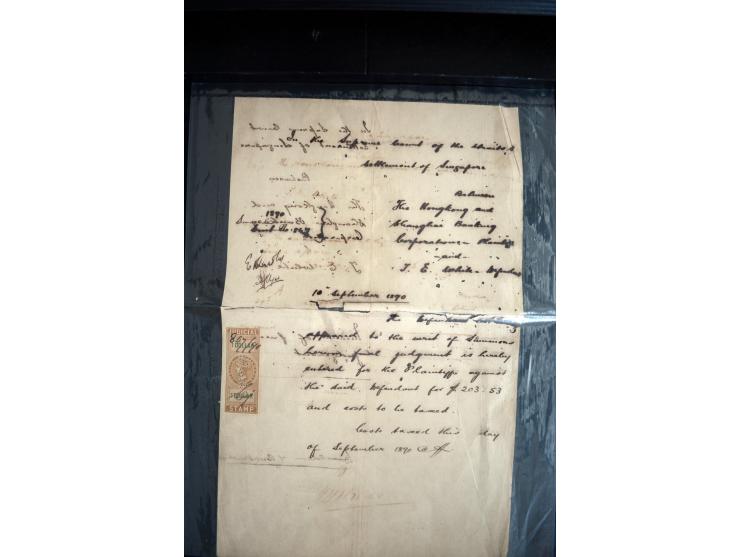 In the Supreme Court of the Straits S
Settlement of Singapore
Between
The Hongkong and
Shanghai Banking
Corporation Plaintiff
and
J. E. White Defendant
1890
Suit No.
10 September 1890
The Defendant not
appeared to the writ of Summons
herein final judgment is hereby
entered for the Plaintiffs against
the said Defendant for $ 203.53
and costs to be taxed.
Costs taxed this day
of September 1890 @ $
JUDICIAL
1 DOLLAR
1 DOLLAR
STAMP